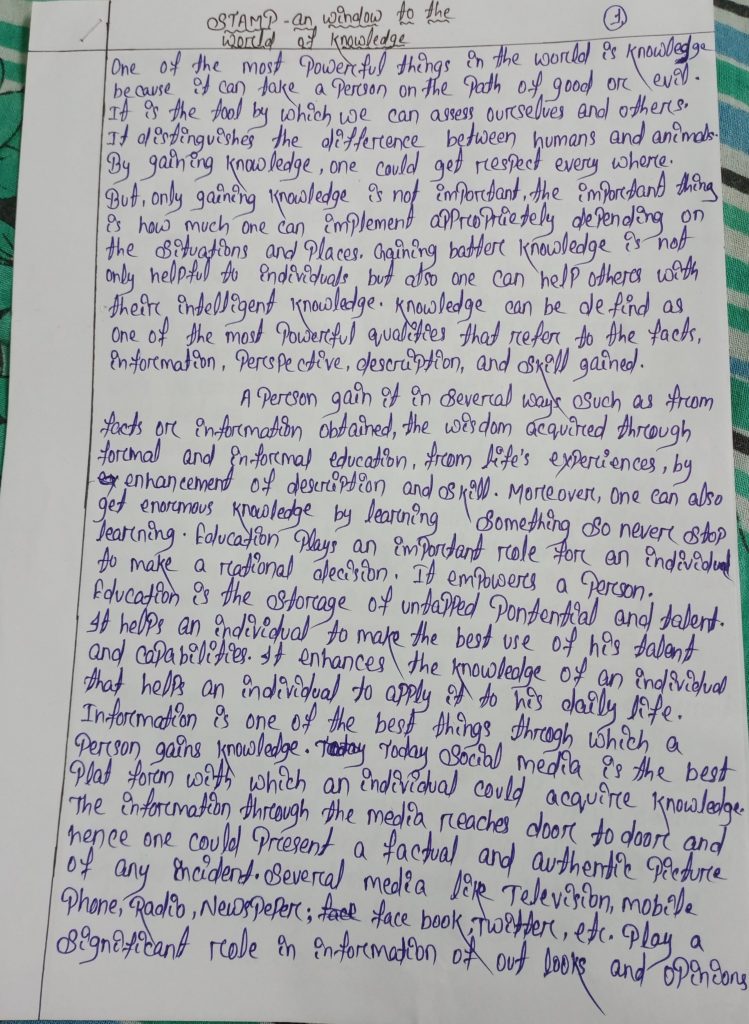 STAMP - an window to the
World of Knowledge
1.
One of the most Powerful things in the world is knowledge
because it can take a Person on the Path of good or evil.
It is the tool by which we can assess ourselves and others.
It distinguishes the difference between humans and animals.
By gaining knowledge, one could get respect every where.
But, only gaining knowledge is not important, the important thing
is how much one can implement appropriately depending on
the situations and Places. Gaining batter knowledge is not
only helpful to individuals but also one can help others with
their intelligent knowledge. Knowledge can be defind as
one of the most Powerful qualities that refer to the facts,
information, Perspective, description, and skill gained.
A Person gain it in several ways such as from
facts or information obtained, the wisdom acquired through
formal and informal education, from life's experiences, by
enhancement of description and skill. Moreover, one can also
get enormous knowledge by learning something so never stop
learning. Education Plays an important role for an individual
to make a rational decision. It empowers a Person.
Education is the storage of untapped Pontential and talent.
It helps an individual to make the best use of his talent
and capabilities. It enhances the knowledge of an individual
that helps an individual to apply it to his daily life.
Information is one of the best things throgh which a
Person gains knowledge. Today Social media is the best
Plat form with which an individual could acquire knowledge.
The information through the media reaches door to door and
hence one could Present a factual and authentic Picture
of any incident. Several media like Television, mobile
Phone, Radio, NewsPeper; face book, Twitter, etc. Play a
Significant role in information of out looks and opinions